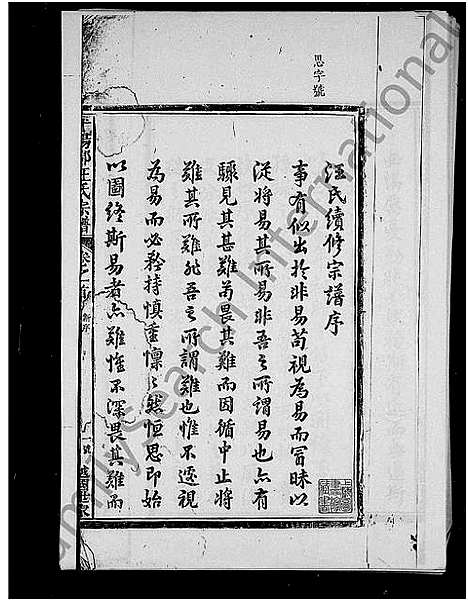 思字號
汪氏續修宗譜序
事有似出於非易苟視為易而冒昧以
從將易其所易非吾之所謂易也亦有
驟見其甚難苟畏其難而因循中止將
難其所難非吾之所謂難也惟不遽視
為易而必矜持慎重懍之然恒思即始
以圖終斯易者亦難惟不深畏其難而
平陽郡汪氏宗譜 卷之一 新序
FamilySearch International